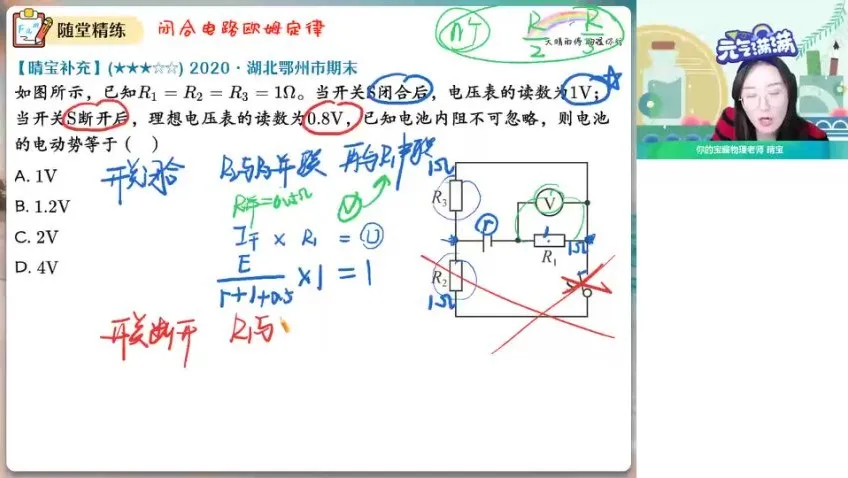 随堂精练
闭合电路欧姆定律
【晴宝补充】(★★★☆☆) 2020·湖北鄂州市期末
如图所示，已知R₁ = R₂ = R₃ = 1Ω。当开关S闭合后，电压表的读数为1V；
当开关S断开后，理想电压表的读数为0.8V，已知电池内阻不可忽略，则电池
的电动势等于（ ）
A. 1V
B. 1.2V
C. 2V
D. 4V
开关闭合
R₂与R₃并联 再与R₁串联
R并=0.5Ω
I干 × R₁ = U
E
r+1+0.5 ×1 = 1
开关断开 R₁与
1Ω
R₃
V
r
R₁
1Ω
R₂
1Ω
R
2
R
3
元气满满
你的宝藏物理老师 晴宝